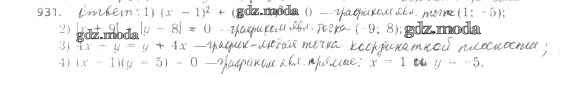 931. Ответ: 1) (x − 1)² + gdz.moda 0 — графиком явл. точка (1; −5);
2) |x + 9| + |y − 8| = 0 - графиком явл. точка (−9; 8); gdz.moda
gdz.moda
3) 4x − y = y + 4x — график - любая точка координатной плоскости;
4) (x − 1)(y − 5) − 0 — графиком явл. прямые: x = 1 и y = −5.